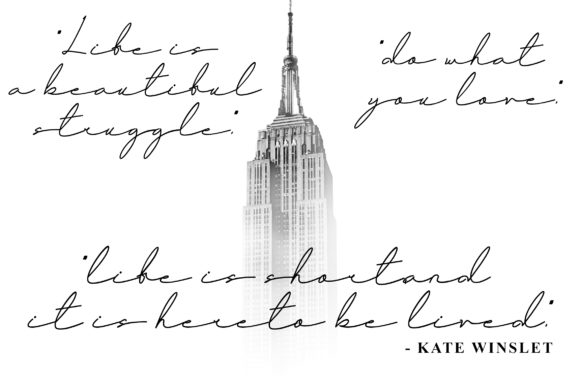 "Life is
a beautiful
struggle."
"do what
you love."
"life is short and
it is here to be lived."
- KATE WINSLET